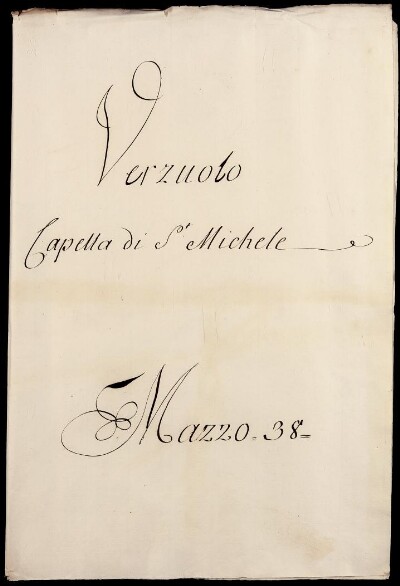 Verzuolo
Capella di S.t Michele
Mazzo. 38=